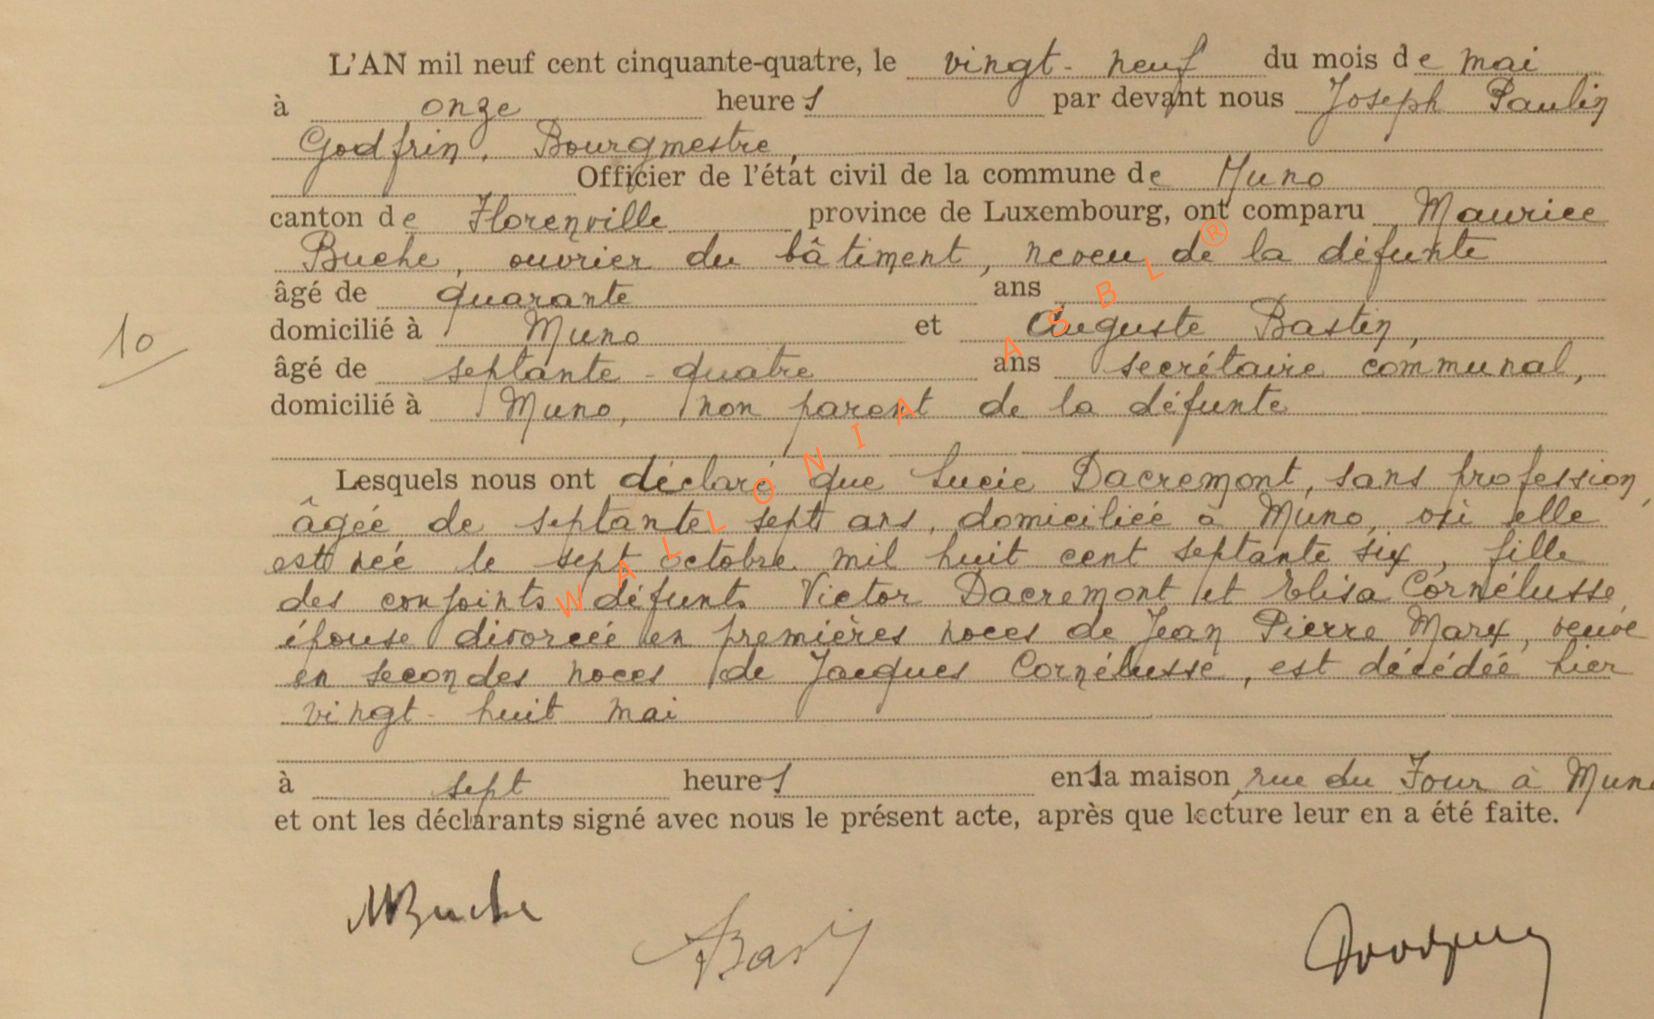 L'AN mil neuf cent cinquante-quatre, le vingt-neuf du mois de mai
à onze heures par devant nous Joseph Paulin
Godfrin, Bourgmestre,
Officier de l'état civil de la commune de Muno
canton de Florenville province de Luxembourg, ont comparu Maurice
Buche, ouvrier du bâtiment, neveu de la défunte
âgé de quarante ans
domicilié à Muno et Auguste Bastin,
10
âgé de septante-quatre ans secrétaire communal,
domicilié à Muno, non parent de la défunte
Lesquels nous ont déclaré que Lucie Dacremont, sans profession,
âgée de septante sept ans, domiciliée à Muno, où elle
est née le sept octobre mil huit cent septante six, fille
des conjoints défunts Victor Dacremont et Elisa Cornélusse,
épouse divorcée en premières noces de Jean Pierre Marx, veuve
en secondes noces de Jacques Cornélusse, est décédée hier
vingt-huit mai
à sept heures en la maison, rue du Four à Muno
et ont les déclarants signé avec nous le présent acte, après que lecture leur en a été faite.
MBuche
ABastin
WALLONIA ASBL ®